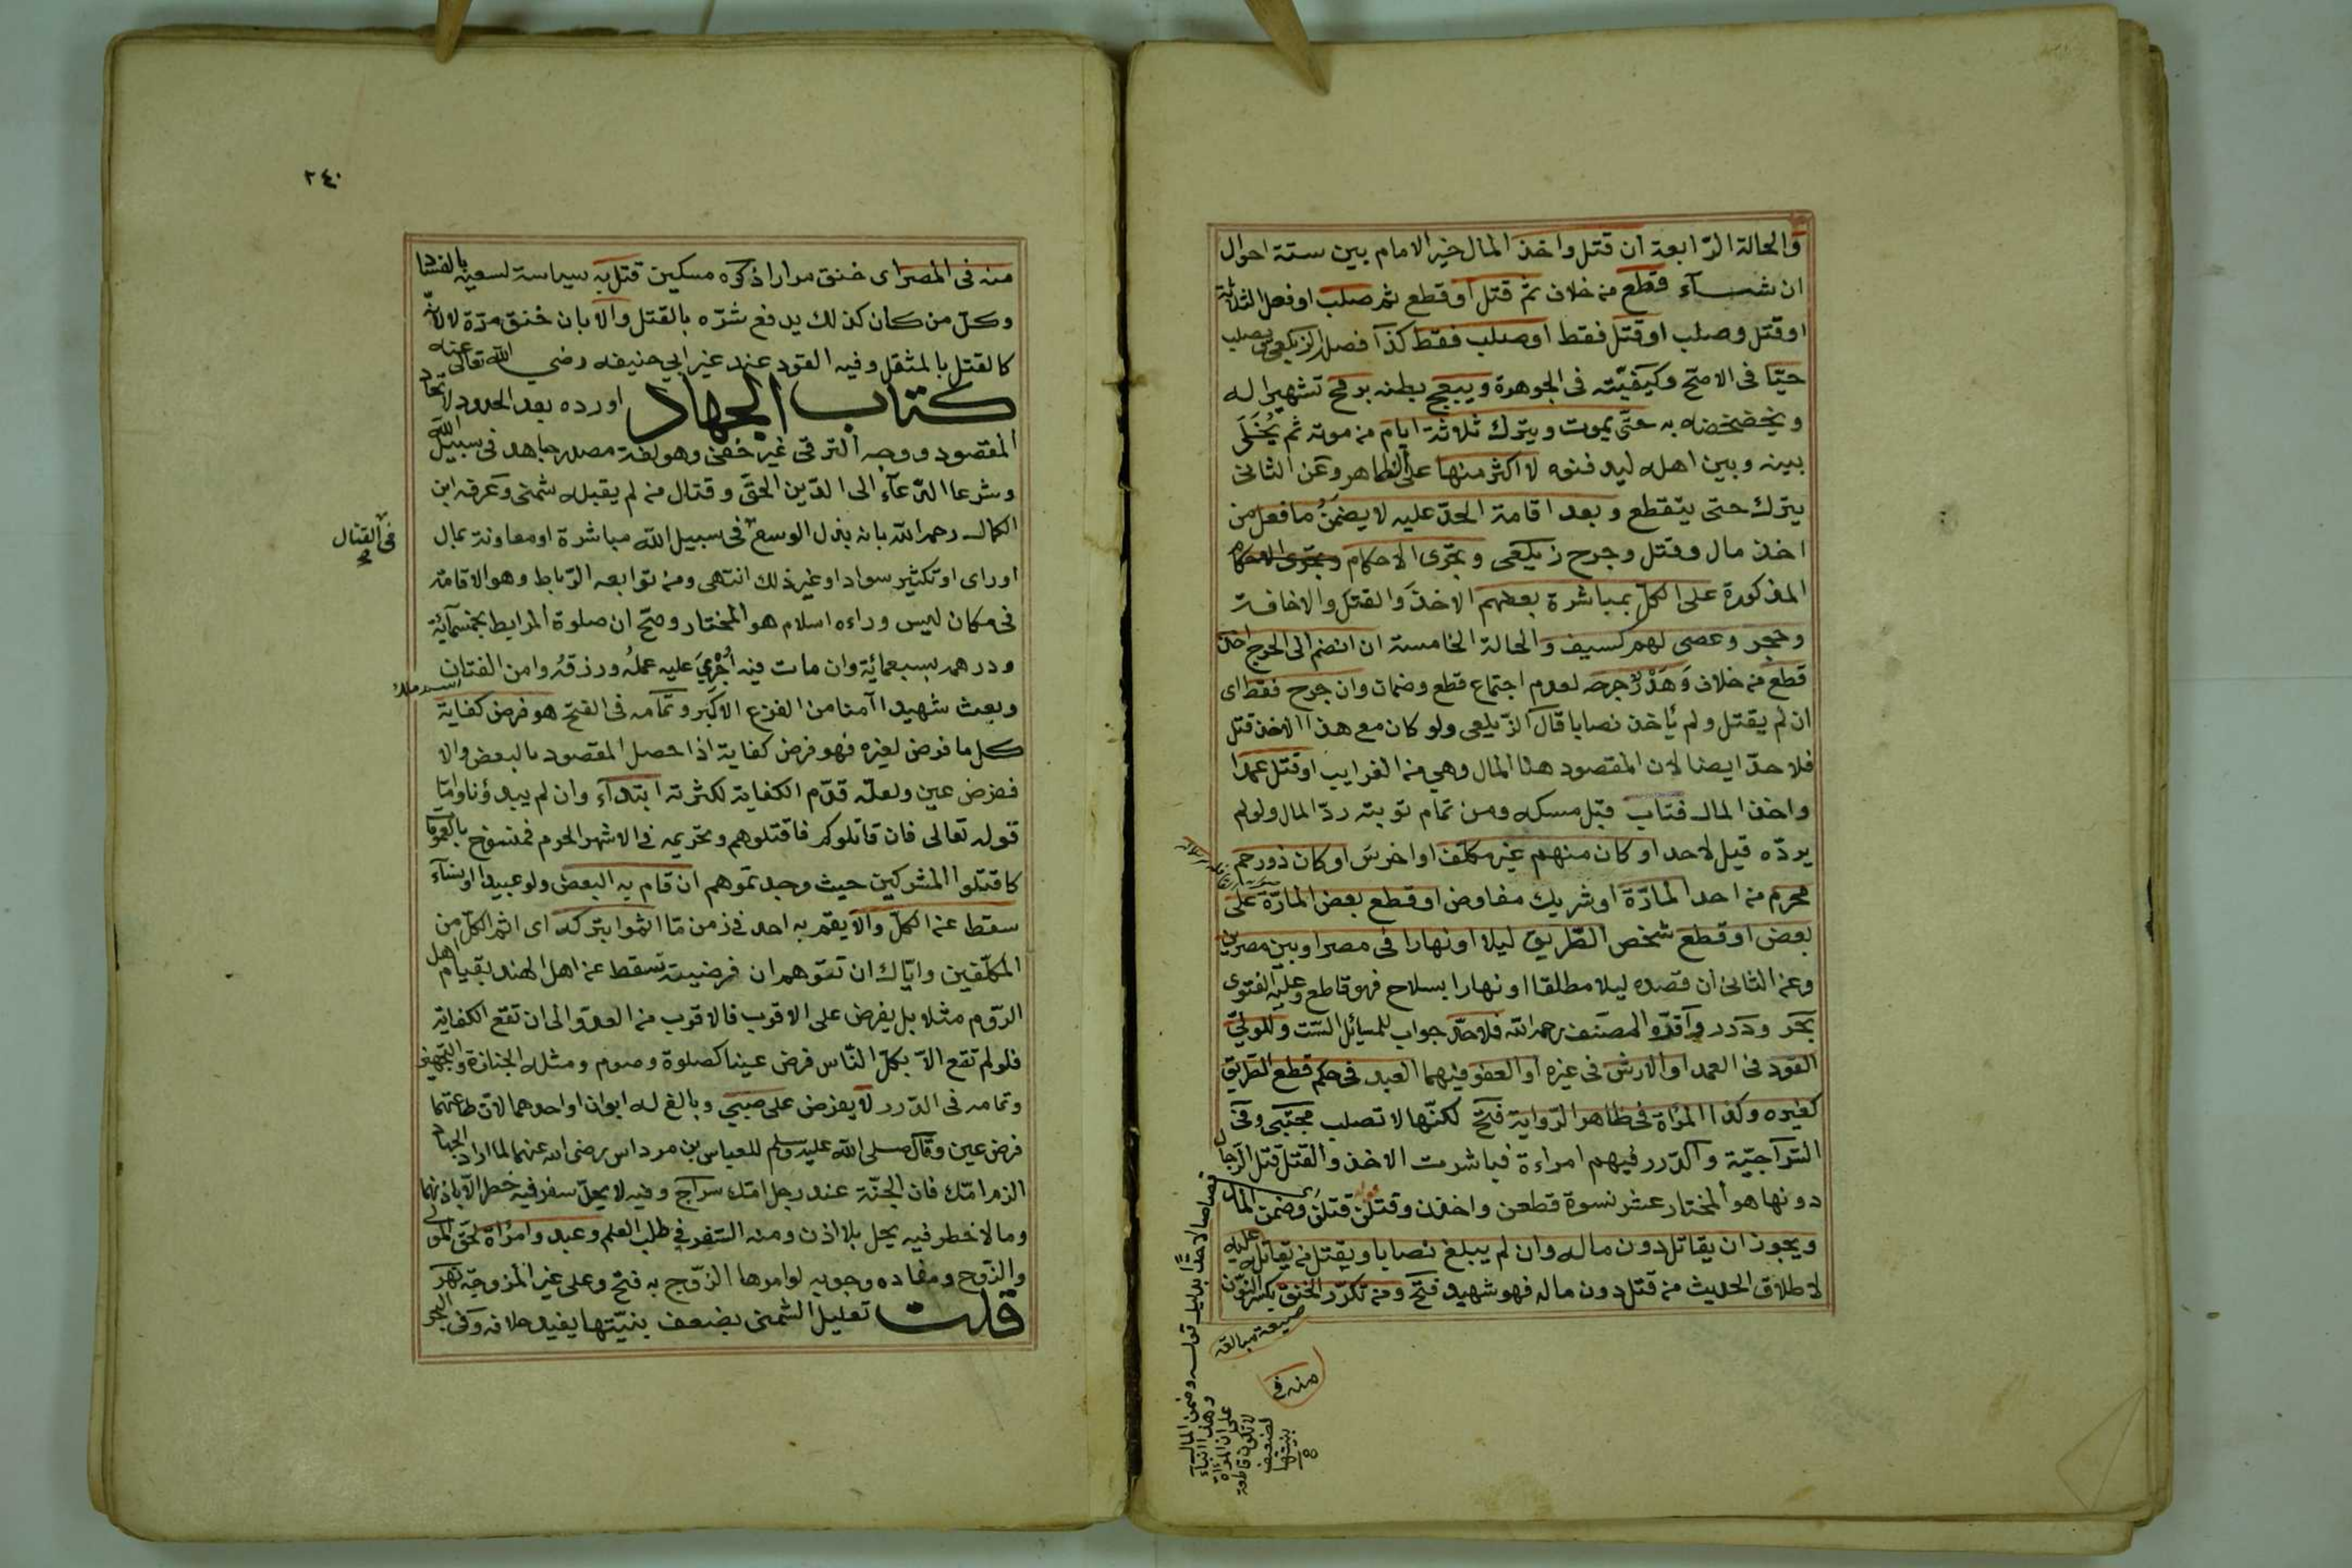 والحالة الرّابعة ان قتل واخذ المال خير الامام بين ستة احوال
ان شــآء قطع من خلاف ثمّ قتل او قطع ثم صلب او فعل الثلاثة
او قتل وصلب او قتل فقط او صلب فقط كذا فصل الزيلعى يصلب
حيّا فى الاصحّ وكيفيّته فى الجوهرة ويبعج بطنه برمح تشهيرا له
ويخضخضه به حتى يموت ويترك ثلاثة ايام من موته ثم يُخَلَّى
بينه وبين اهله ليدفنوه لا اكثر منها على الظاهر وعن الثانى
يترك حتى يتقطع وبعد اقامة الحدّ عليه لا يضمنُ ما فعل من
اخذ مال وقتل وجرح زيلعى وتجرى الاحكام
المذكورة على الكلّ بمباشرة بعضهم الاخذ والقتل والاخافة
وحجر وعصى لهم كسيف والحالة الخامسة ان انضم الى الجرح اخذ
قطع من خلاف وَهَدْرٌ جرحه لعدم اجتماع قطع وضمان وان جرح فقط اى
ان لم يقتل ولم يأخذ نصابا قال الزّيلعى ولو كان مع هذا الاخذ قتل
فلا حدّ ايضا لان المقصود هنا المال وهي من الغرايب او قتل عمدا
واخذ المال فتاب قبل مسكه ومن تمام توبته ردّ المال ولو لم
يردّه قيل لا حد او كان منهم غير مكلّف او اخرسَ او كان ذورحم
محرم من احد المارّة او شريك مفاوض او قطع بعض المارّة على
بعض او قطع شخص الطّريق ليلا او نهارا فى مصر او بين مصرين
وعن الثانى ان قصده ليلا مطلقا او نهارا بسلاح فهو قاطع وعليه الفتوى
بحر ودرر واقرّه المصنف رحمه الله فلا حدّ جواب للمسائل السّت وللولىّ
القود فى العمد او الارش فى غيره او العفو فيهما العبد فى حكم قطع الطّريق
كغيره وكذا المرأة فى ظاهر الرّواية فتح لكنّها لا تصلب مجتبى وفى
السّراجيّة والدّرر فيهم امراءة فباشرت الاخذ والقتل قتل الرّجال
دونها هو المختار عشر نسوة قطعن واخذن وقتلن قتلن وضمن المال
ويجوز ان يقاتل دون ماله وان لم يبلغ نصابا ويقتل من يقاتله عليه
لاطلاق الحديث من قتل دون ماله فهو شهيد فتح ومن تكرّر الخنق بكسر النّون
صيغة مبالغة
منه فى
قصاصا لا حدّا بدليل قوله وضمن المال
وهذا بناء
على ان المرأة
لا تكون قاطعة
لضعف
بنيتها
٢٤٠
منه فى المصر اى خنق مرارا ذكره مسكين قتل به سياسة لسعيه بالفساد
وكلّ من كان كذلك يدفع شرّه بالقتل والا بان خنق مرّة لا لانّه
كالقتل بالمثقل وفيه القود عند غير ابي حنيفه رضي الله تعالى عنه
كتاب الجهاد اورده بعد الحدود لاتحاد
المقصود ووجه الترقى غير خفى وهو لغة مصدر جاهد فى سبيل الله
وشرعا الدّعآء الى الدّين الحقّ وقتال من لم يقبله شمنى وعرفه ابن
الكمال رحمه الله بانه بذل الوسع فى سبيل الله مباشرة او معاونة بمال
فى القتال
او راى او تكثير سواد او غير ذلك انتهى ومن توابعه الرّباط وهو الاقامة
فى مكان ليس وراءه اسلام هو المختار وصحّ ان صلوة المرابط بخمسمآئة
ودرهمه بسبعمائة وان مات فيه اُجْرِيَ عليه عملُه ورزقُه وامن الفتان
وبعث شهيدا آمنا من الفزع الاكبر وتمامه فى الفتح هو فرض كفاية
كل ما فرض لغيره فهو فرض كفاية اذا حصل المقصود بالبعض والا
ففرض عين ولعلّه قدّم الكفاية لكثرته ابتدآء وان لم يبدؤنا وامّا
قوله تعالى فان قاتلوكم فاقتلوهم وتحريمه فى الاشهر الحرم فمنسوخ بالعمومات
كاقتلوا المشركين حيث وجدتموهم ان قام به البعض ولو عبيدا او نسآء
سقط عن الكلّ والا يقم به احد فى زمن مّا اثموا بتركه اى اثم الكلّ من
المكلّفين وايّاك ان تتوّهم ان فرضيته تسقط عن اهل الهند بقيام اهل
الرّوم مثلا بل يفرض على الاقرب فالاقرب من العدوّ الى ان تقع الكفاية
فلو لم تقع الاّ بكلّ النّاس فرض عينا كصلوة وصوم ومثله الجنازة والتّجهيز
وتمامه فى الدّرر لا يفرض على صبىّ وبالغ له ابوان او احدهما لانّ طاعتهما
فرض عين وقال صلى الله عليه وسلم للعباس بن مرداس رضى الله عنهما لما اراد الجهاد
الزم امّك فان الجنّة عند رجل امّك سراج وفيه لا يحلّ سفر فيه خطر الاّ باذنهما
وما لا خطر فيه يحل بلا اذن ومنه السّفر في طلب العلم وعبد وامرأة لحقّ المولى
والزّوج ومفاده وجوبه لو امرها الزّوج به فتح وعلى غير المزوجة نهر
قلت تعليل الشمنى بضعف بنيّتها يفيد خلافه وفى البحر